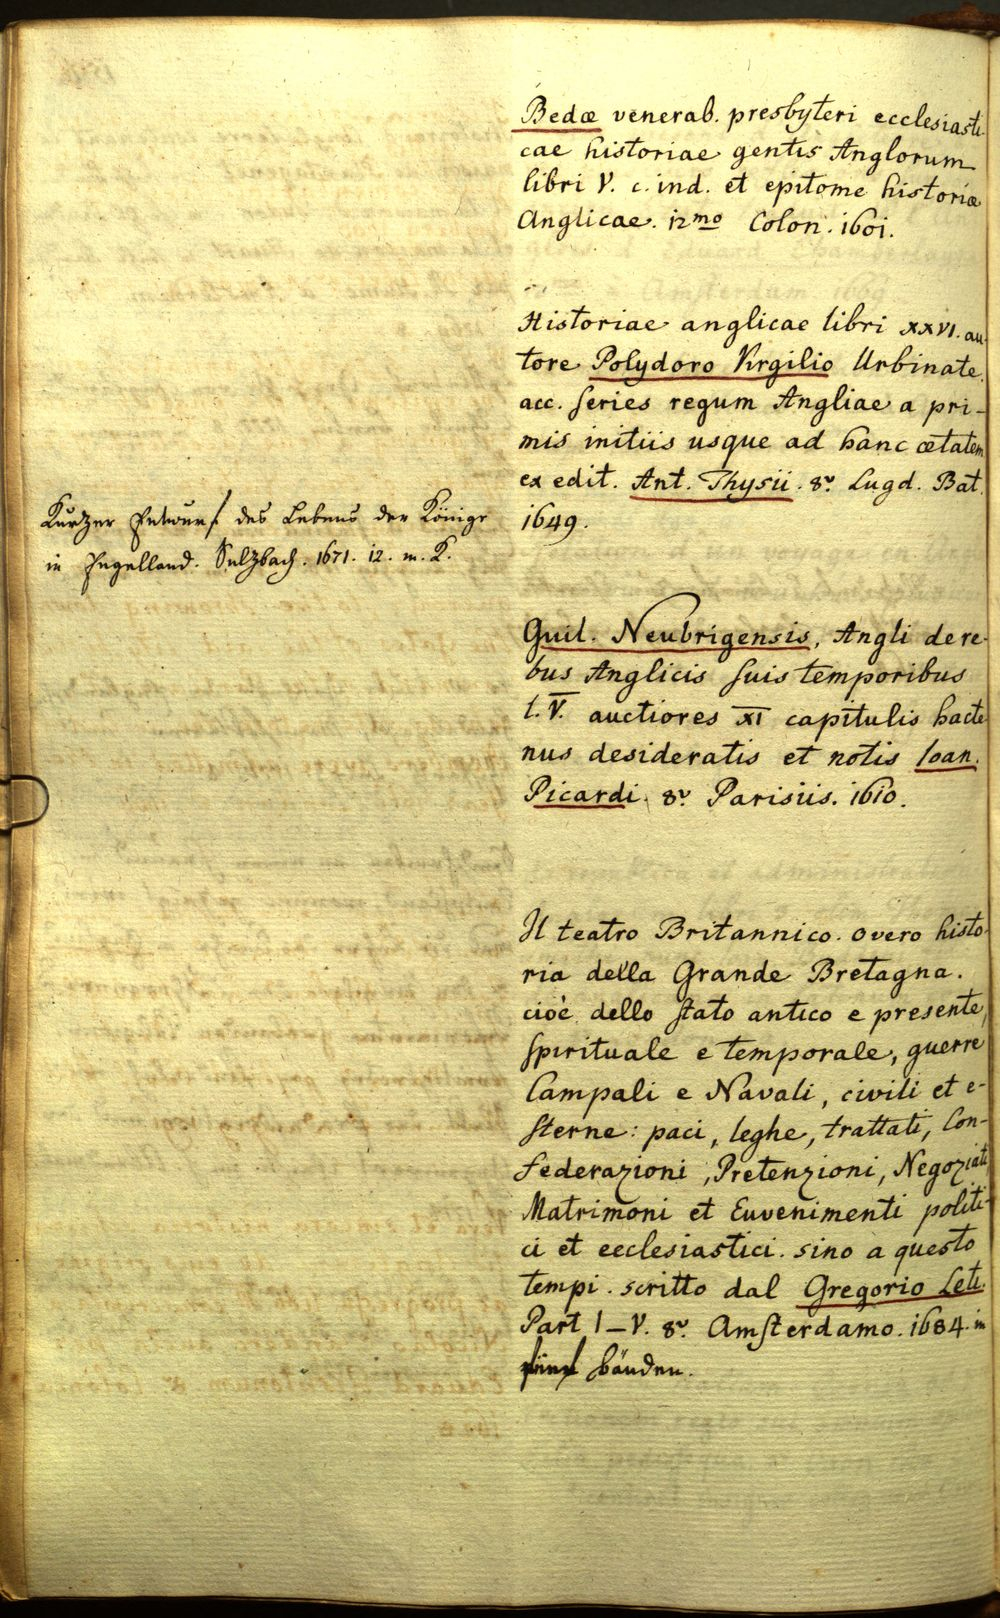 Bedæ venerab. presbyteri ecclesiasti-
cae historiae gentis Anglorum
libri V. c. ind. et epitome historiæ
Anglicae. 12mo Colon. 1601.
Historiae anglicae libri XXVI. au-
tore Polydoro Virgilio Urbinate.
acc. series regum Angliae a pri-
mis initiis usque ad hanc ætatem
ex edit. Ant. Thysii. 8v. Lugd. Bat.
1649.
Kurtzer Entwurf des Lebens der Könige
in Engelland. Sulzbach. 1671. 12. m. K.
Guil. Neubrigensis, Angli de re-
bus Anglicis suis temporibus
l. V. auctiores XI capitulis hacte
nus desideratis et notis Ioan.
Picardi. 8v. Parisiis. 1610.
Il teatro Britannico. overo histo-
ria della Grande Bretagna.
cioè dello stato antico e presente,
spirituale e temporale, guerre
Campali e Navali, civili et e-
sterne: paci, leghe, trattati, Con-
federazioni, Pretenzioni, Negoziati
Matrimoni et Euvenimenti politi-
ci et ecclesiastici. sino a questo
tempi. scritto dal Gregorio Leti.
Part I–V. 8v. Amsterdamo. 1684. in
fünf bänden.